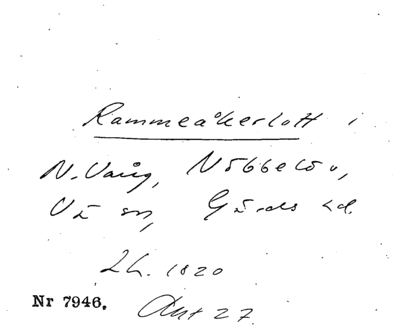 Rammeåkerlott i
N. Vång, Nöbbelöv,
Vä sn, Gärds hd.
Lh. 1820
Nr 7946. Akt 27